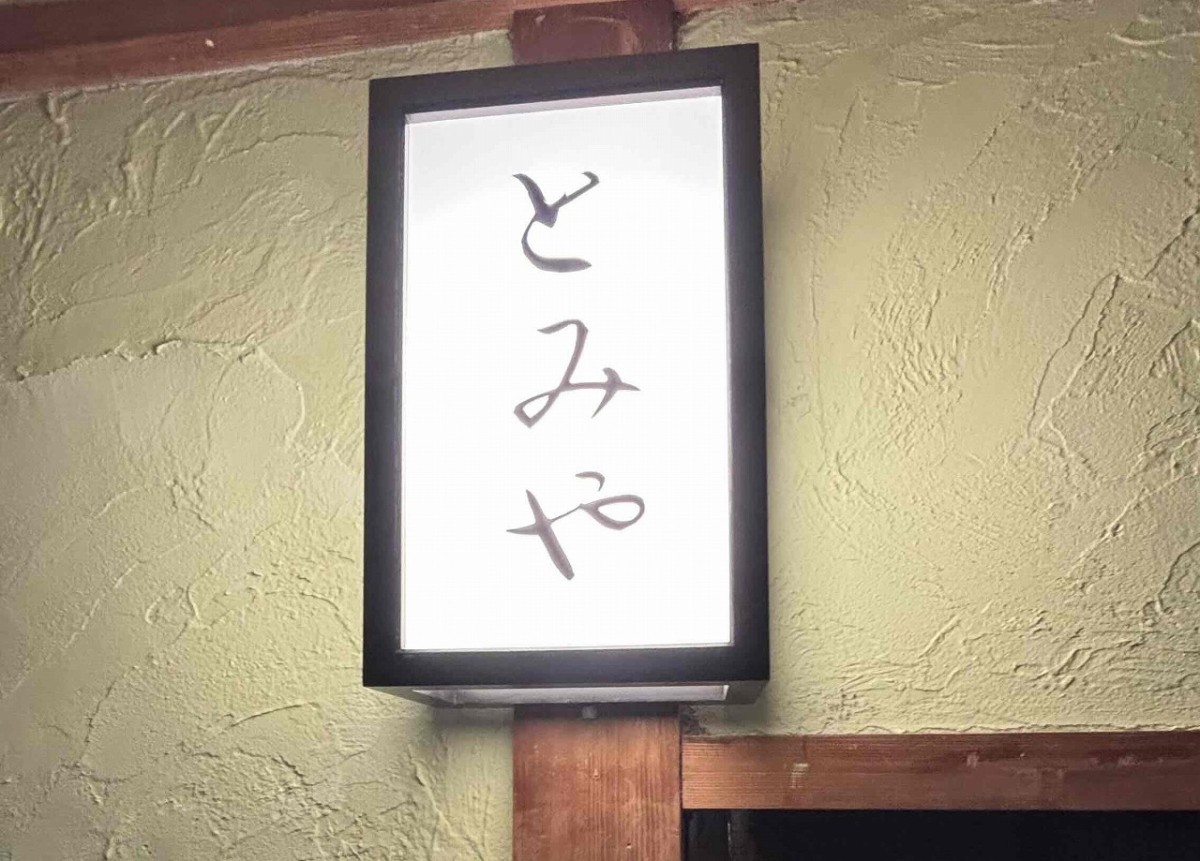 とみや